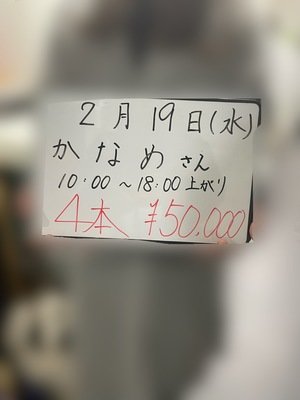 2月19日(水)
かなめさん
10:00～18:00上がり
4本 ¥50.000